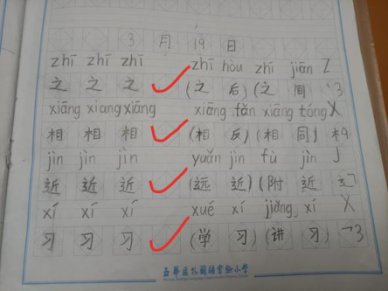 3月19日
zhī zhī zhī zhī hòu zhī jiān Z
之 之 之 (之 后) (之 间
xiāng xiang xiāng xiāng fǎn xiāng tóng X
相 相 相 (相 反) (相 同)
jìn jìn jìn yuǎn jìn fù jìn J
近 近 近 (远 近) (附 近
xí xí xí xué xí jiǎng xí X
习 习 习 (学 习) (讲 习)